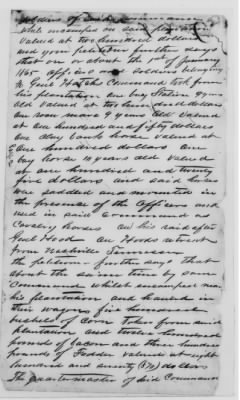 soldiers of said command
while encamped on said plantation
valued at two hundred dollars
and your petitioner further says
that on or about the 1st of January
1865 officers and soldiers belonging
to Genl Hatch's Command took from
his plantation one bay Stallion 9 years
old valued at two hundred dollars
one roan mare 9 years old valued
at one hundred and fifty dollars
one horse valued at
one hundred dollars one
bay horse 10 years old valued
at one hundred and twenty
five dollars and said
was saddled and mounted in
the presence of the officers and
used in said command as
Cavalry horses on his raid after
Genl Hood on Hoods retreat
from Nashville Tennessee
the petitioner further says that
about the same time by same
Command whilst encamped near
his plantation and hauled in
their wagons five hundred
bushels of corn taken from said
plantation and twelve hundred
pounds of bacon and three hundred
pounds of Fodder valued at eight
hundred and seventy dollars
The quartermaster of said Command